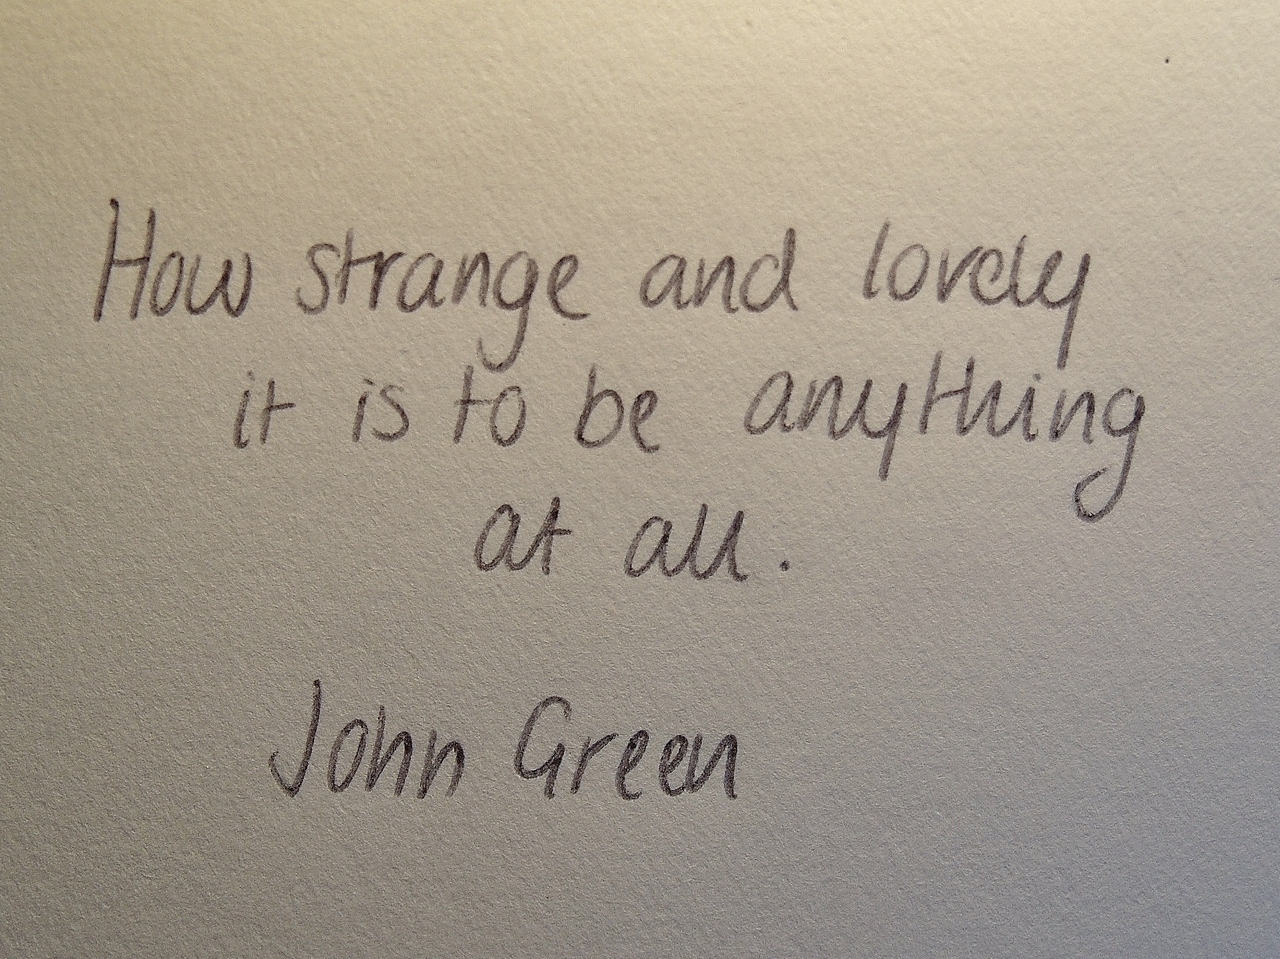 How strange and lovely
it is to be anything
at all.
John Green